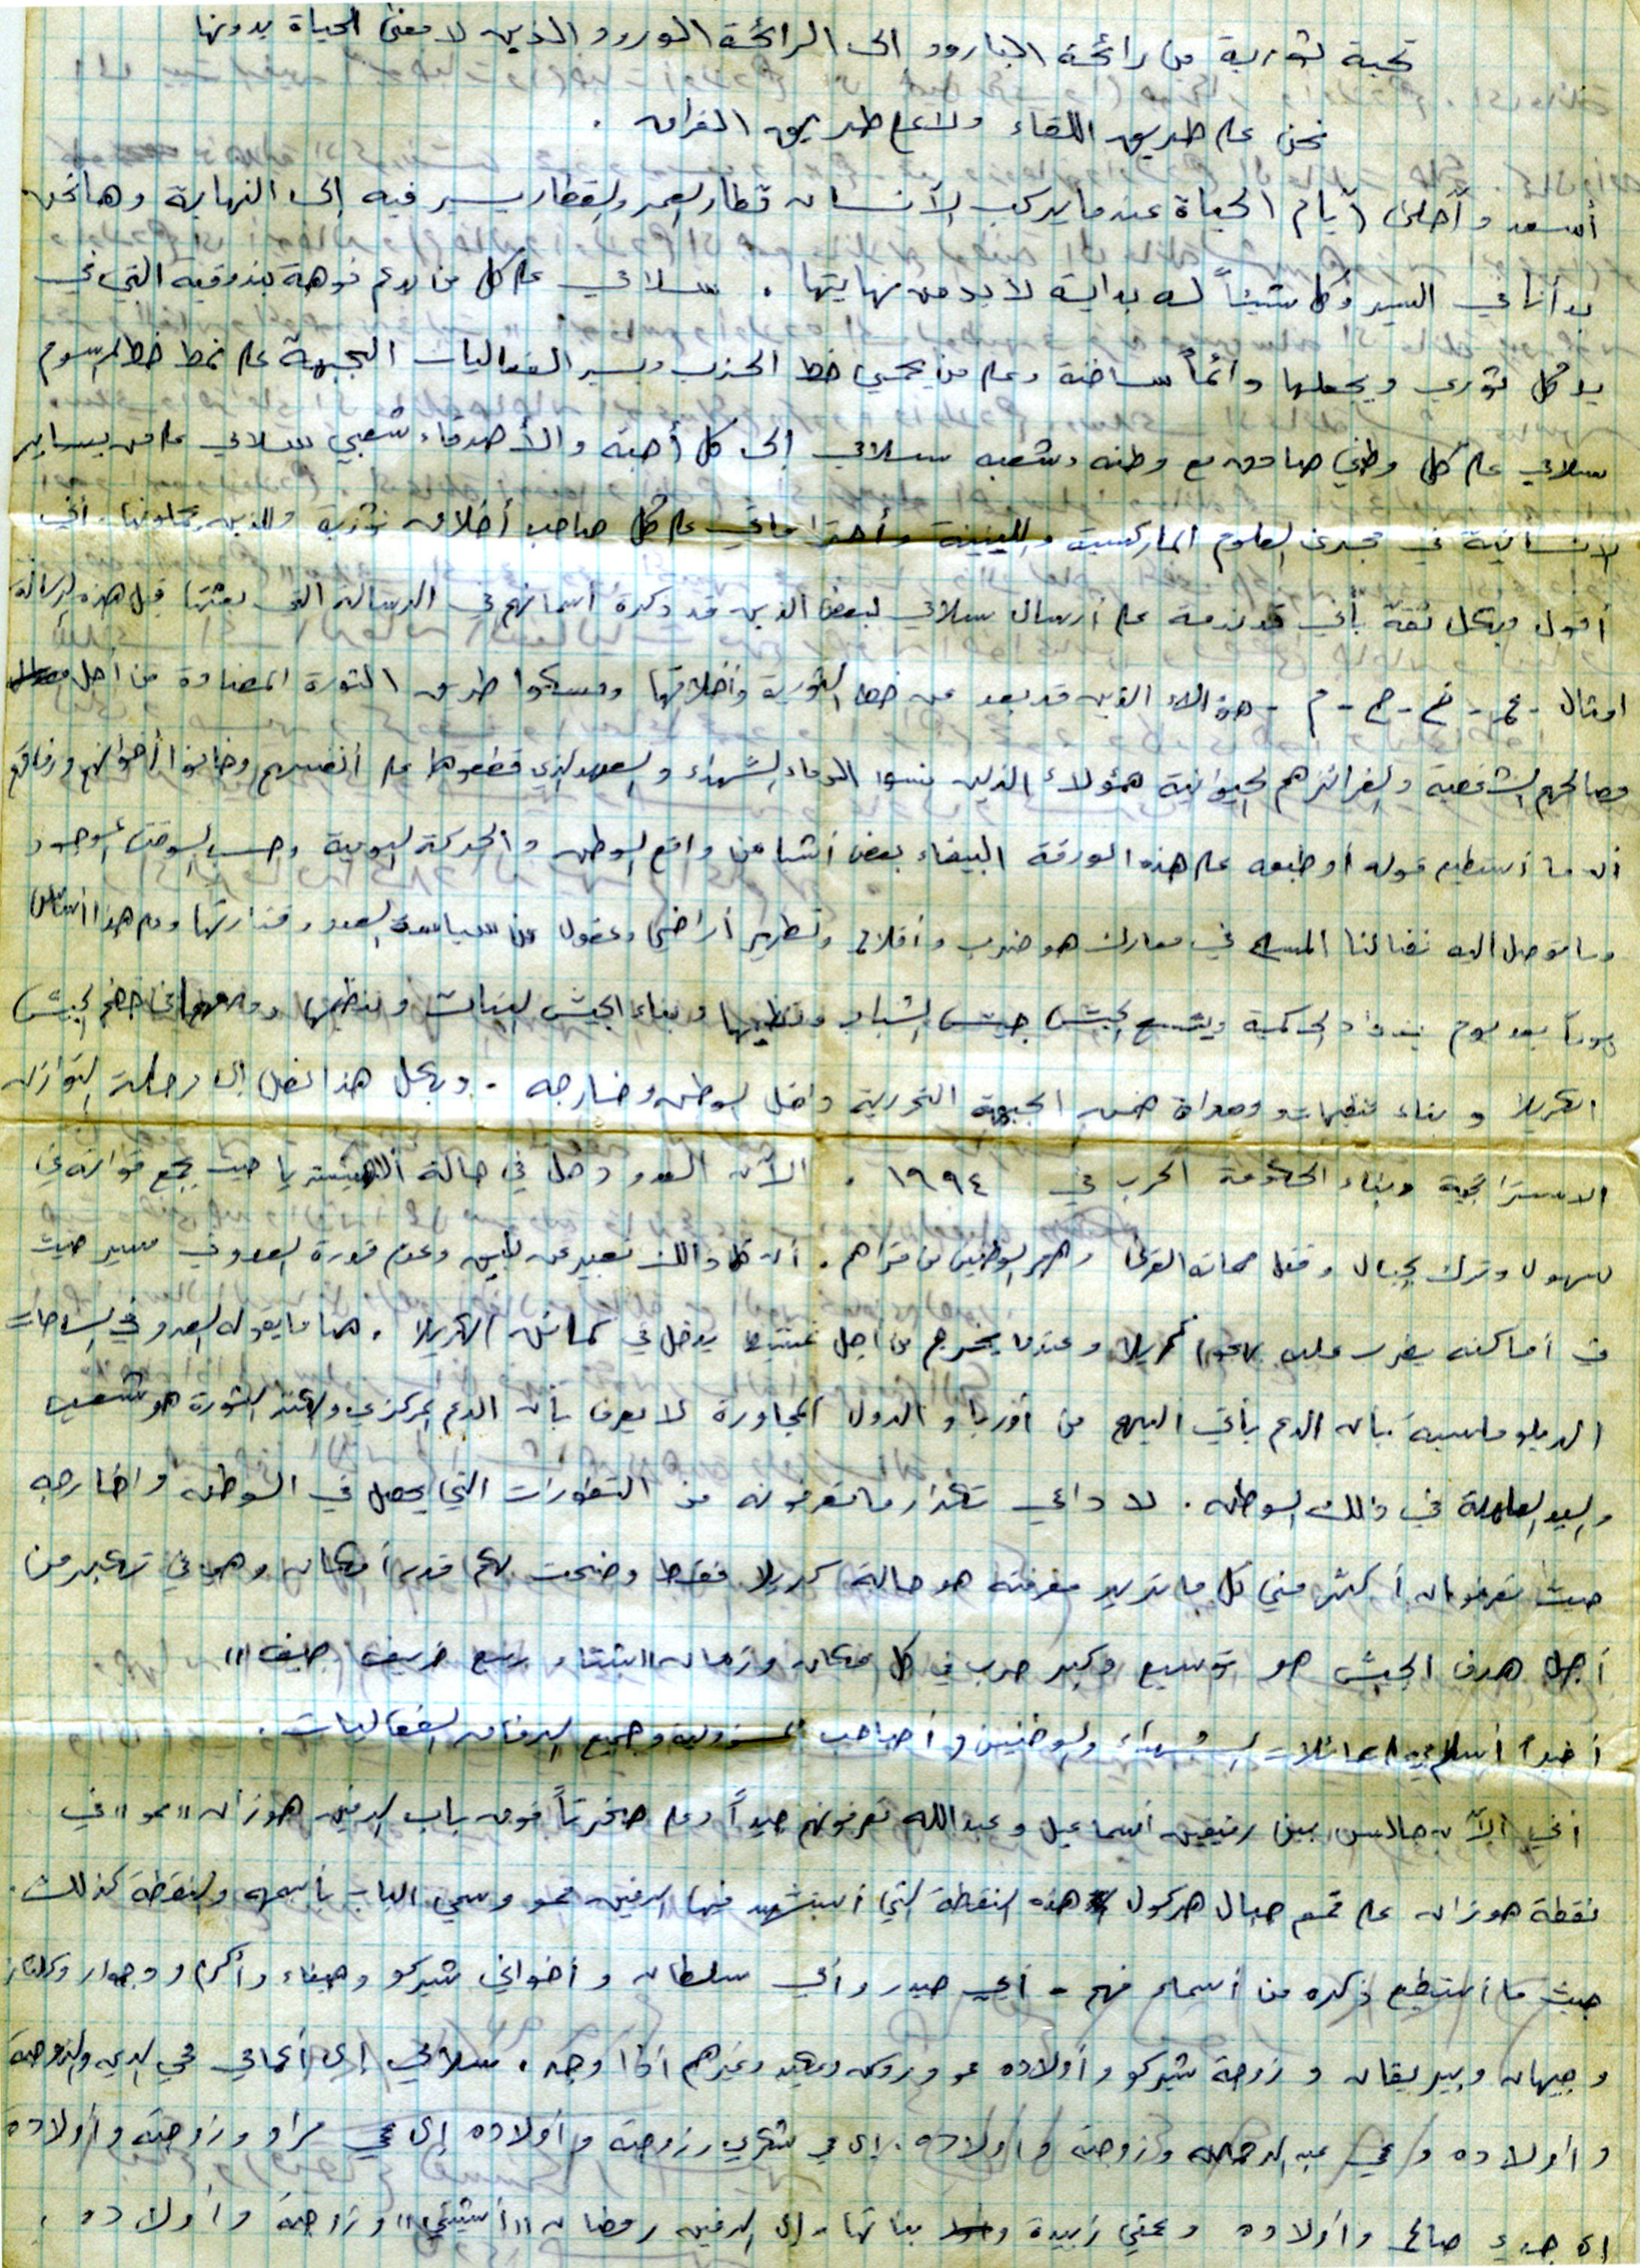 تحية ثورية من رائحة البارود الى الرائحة الورود الذين لا معنى الحياة بدونها
نحن على طريق اللقاء ولا على طريق الفراق .
أسعد وأحلى أيام الحياة عندما يركب الأنسان قطار العمر والقطار يسير فيه إلى النهاية وها نحن
بدأنا في السير وكل شيئاً له بداية لا بد من نهايتها . سلامي على كل من يدعم فوهة بندوقية التي في
يد كل ثوري ويجعلها دائماً ساخنة وعلى من يحمي خط الحزب ويسير الفعاليات الجبهة على نمط خط المرسوم
سلامي على كل وطني صادق مع وطنه وشعبه سلامي إلى كل أحبة والأصدقاء شعبي سلامي على من يساير
الانسانية في مجرى العلوم الماركسية واللينينية وأحتراماتي على كل صاحب أخلاق ثورية والذين يحملونها . أني
أقول وبكل ثقة بأني قد ندمة على أرسال سلامي لبعض الذين قد ذكرة أسمائهم في الرسالة التي بعثتها قبل هذه الرسالة
امثال - عمر - خ - ح - م - هؤالاء الذين قد بعد عن خط الثورية وأخلاقها ومسكوا طريق الثورة المضادة من أجل
مصالحهم الشخصية والغرائزهم الحيوانية هؤولاء الذين نسوا الدماء الشهداء والعهد الذي قطعوها على أنفسهم وخانوا أخوانهم ورفاقهم
أن ما أستطيع قوله أو طبعه على هذه الورقة البيضاء بعض أشيا من واقع الوطن والحركة اليومية وحسب الوقت الموجود
وما توصل اليه نضالنا المسلح في معارك هو ضرب وأقلام وتطهير أراضي وعقول من سياسة العدو وقذارتها وعلى هذا أساس
يوماً بعد يوم يزداد الحركية ويتسع الجيش جيش الشباب وتنظيمها وبناء الجيش البنات وتنظيمها في الجيش
الكريلا وبناء تنظيمات ضمن الجبهة التحررية داخل الوطن وخارجه . وبكل هذا نصل إلى مرحلة التوازن
الاستراتجية وبناء الحكومة الحرب في ١٩٩٤ . الأن العدو دخل في حالة الهيستريا حيث يجمع قواته في
السهول وترك الجبال وقتل حماة القرى وهجر الوطنين من قراهم . أن كل ذالك تعبير عن يأس وعدم قدرة العدو في سير حيث
في أماكنه يضرب عليه كريلا وعندما يخرج من أجل يدخل في كمائن الكريلا . هنا ما يقوله العدو في الساحات
الديلوماسية بأن الدعم يأتي اليهم من أوربا والدول المجاورة لا يعرف بأن الدعم المركزي الثورة هو شعب
واليد العاملة في ذلك الوطن . لا داعي تكرار ما تعرفونه من التطورات التي يحصل في الوطن واخارجه
حيث تعرفونه أكثر مني كل ما تريد معرفته هو حالة كريلا فقط وضحت لكم قدر أمكان وهو في تكبير من
أجل هدف الجيش هو توسيع وكبر حرب في كل مكان وزمان "شتاء ربيع خريف صيف"
أخيراً أسلم على عائلات الشهداء والوطنيين وأصحاب المسؤولية وجميع الرفاق الفعاليات .
أني الأن جالس بين رفيقين أسماعيل وعبدالله تعرفونهم جيداً وعلى صخرتاً فوق باب الرفيق هوزان "حمو" في
نقطة هوزان على قمم جبال هركول هذه النقطة التي أستشهد فيها الرفيق حمو وسمي الباب بأسمه والنقطة كذالك .
حيث ما أستطيع ذكره من أسماء فهم - أبي حيدر وأمي سلطان وأخواني شيركو وهيفاء وأكرم وجوار وكلناز
وجيهان وبيريفان وزوجة شيركو وأولاده وغيرهم اذا وجد . سلامي إلى أعمامي محي الدين والزوجة
وأولاده وعمي عبد الرحمن وزوجة وأولاده . إلى عمي شكري وزوجة وأولاده إلى عمي مراد وزوجة وأولاده
إلى جدي صالح وأولاده وعمتي زبيدة بناتها . إلى الرفيق رمضان وزوجة وأولاده .